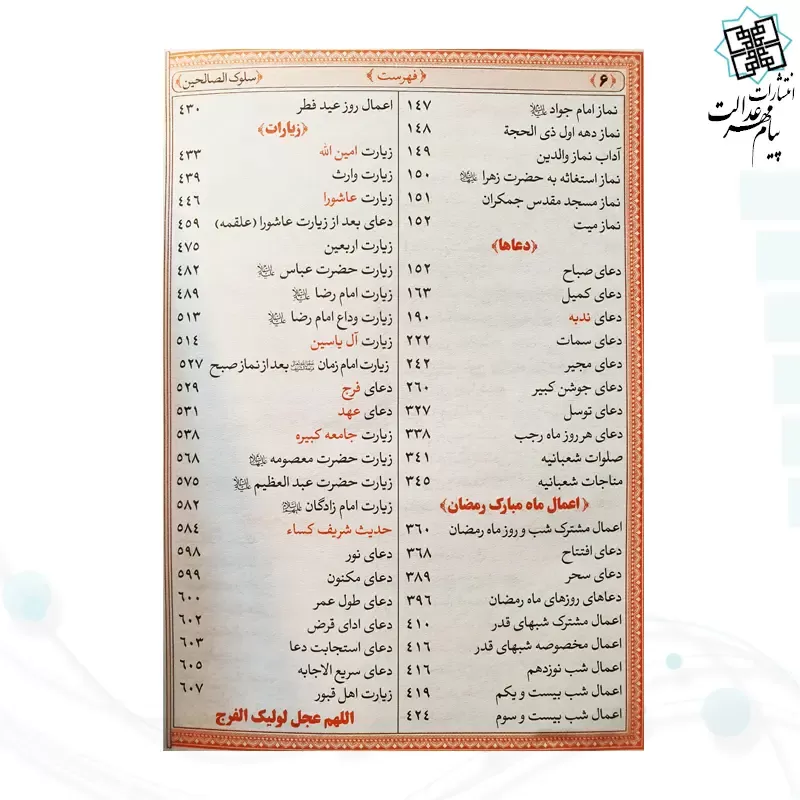 انتشارات
پیام مهر عدالت
﴿۶﴾
﴿فهرست﴾
﴿سلوک الصالحین﴾
نماز امام جواد علیه‌السلام ۱۴۷
نماز دهه اول ذی الحجة ۱۴۸
آداب نماز والدین ۱۴۹
نماز استغاثه به حضرت زهرا ۱۵۰
نماز مسجد مقدس جمکران ۱۵۱
نماز میت ۱۵۲
﴿دعاها﴾
دعای صباح ۱۵۲
دعای کمیل ۱۶۳
دعای ندبه ۱۹۰
دعای سمات ۲۲۲
دعای مجیر ۲۴۲
دعای جوشن کبیر ۲۶۰
دعای توسل ۳۲۷
دعای هر روز ماه رجب ۳۳۸
صلوات شعبانیه ۳۴۱
مناجات شعبانیه ۳۴۵
﴿اعمال ماه مبارک رمضان﴾
اعمال مشترک شب و روز ماه رمضان ۳۶۰
دعای افتتاح ۳۶۸
دعای سحر ۳۸۹
دعاهای روزهای ماه رمضان ۳۹۶
اعمال مشترک شبهای قدر ۴۱۰
اعمال مخصوصه شبهای قدر ۴۱۶
اعمال شب نوزدهم ۴۱۶
اعمال شب بیست و یکم ۴۱۹
اعمال شب بیست و سوم ۴۲۴
اعمال روز عید فطر ۴۳۰
﴿زیارات﴾
زیارت امین الله ۴۳۳
زیارت وارث ۴۳۹
زیارت عاشورا ۴۴۶
دعای بعد از زیارت عاشورا (علقمه) ۴۵۹
زیارت اربعین ۴۷۵
زیارت حضرت عباس علیه‌السلام ۴۸۲
زیارت امام رضا علیه‌السلام ۴۸۹
زیارت وداع امام رضا علیه‌السلام ۵۱۳
زیارت آل یاسین ۵۱۴
زیارت امام زمان بعد از نماز صبح ۵۲۷
دعای فرج ۵۲۹
دعای عهد ۵۳۱
زیارت جامعه کبیره ۵۳۸
زیارت حضرت معصومه ۵۶۸
زیارت حضرت عبد العظیم علیه‌السلام ۵۷۵
زیارت امام زادگان ۵۸۲
حدیث شریف کساء ۵۸۴
دعای نور ۵۹۸
دعای مکنون ۵۹۹
دعای طول عمر ۶۰۰
دعای ادای قرض ۶۰۲
دعای استجابت دعا ۶۰۳
دعای سریع الاجابه ۶۰۵
زیارت اهل قبور ۶۰۷
اللهم عجل لولیک الفرج